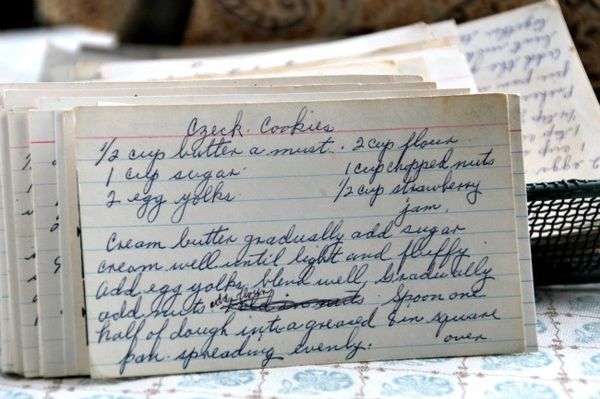 Czeck Cookies
1/2 cup butter a must. 2 cup flour
1 cup sugar 1 cup chopped nuts
2 egg yolks 1/2 cup strawberry
jam.
Cream butter gradually add sugar
cream well until light and fluffy.
add egg yolks, blend well, Gradually
add flour
add nuts. Fold in nuts. Spoon one
half of dough into a greased 8 in square
pan. spreading evenly.
over